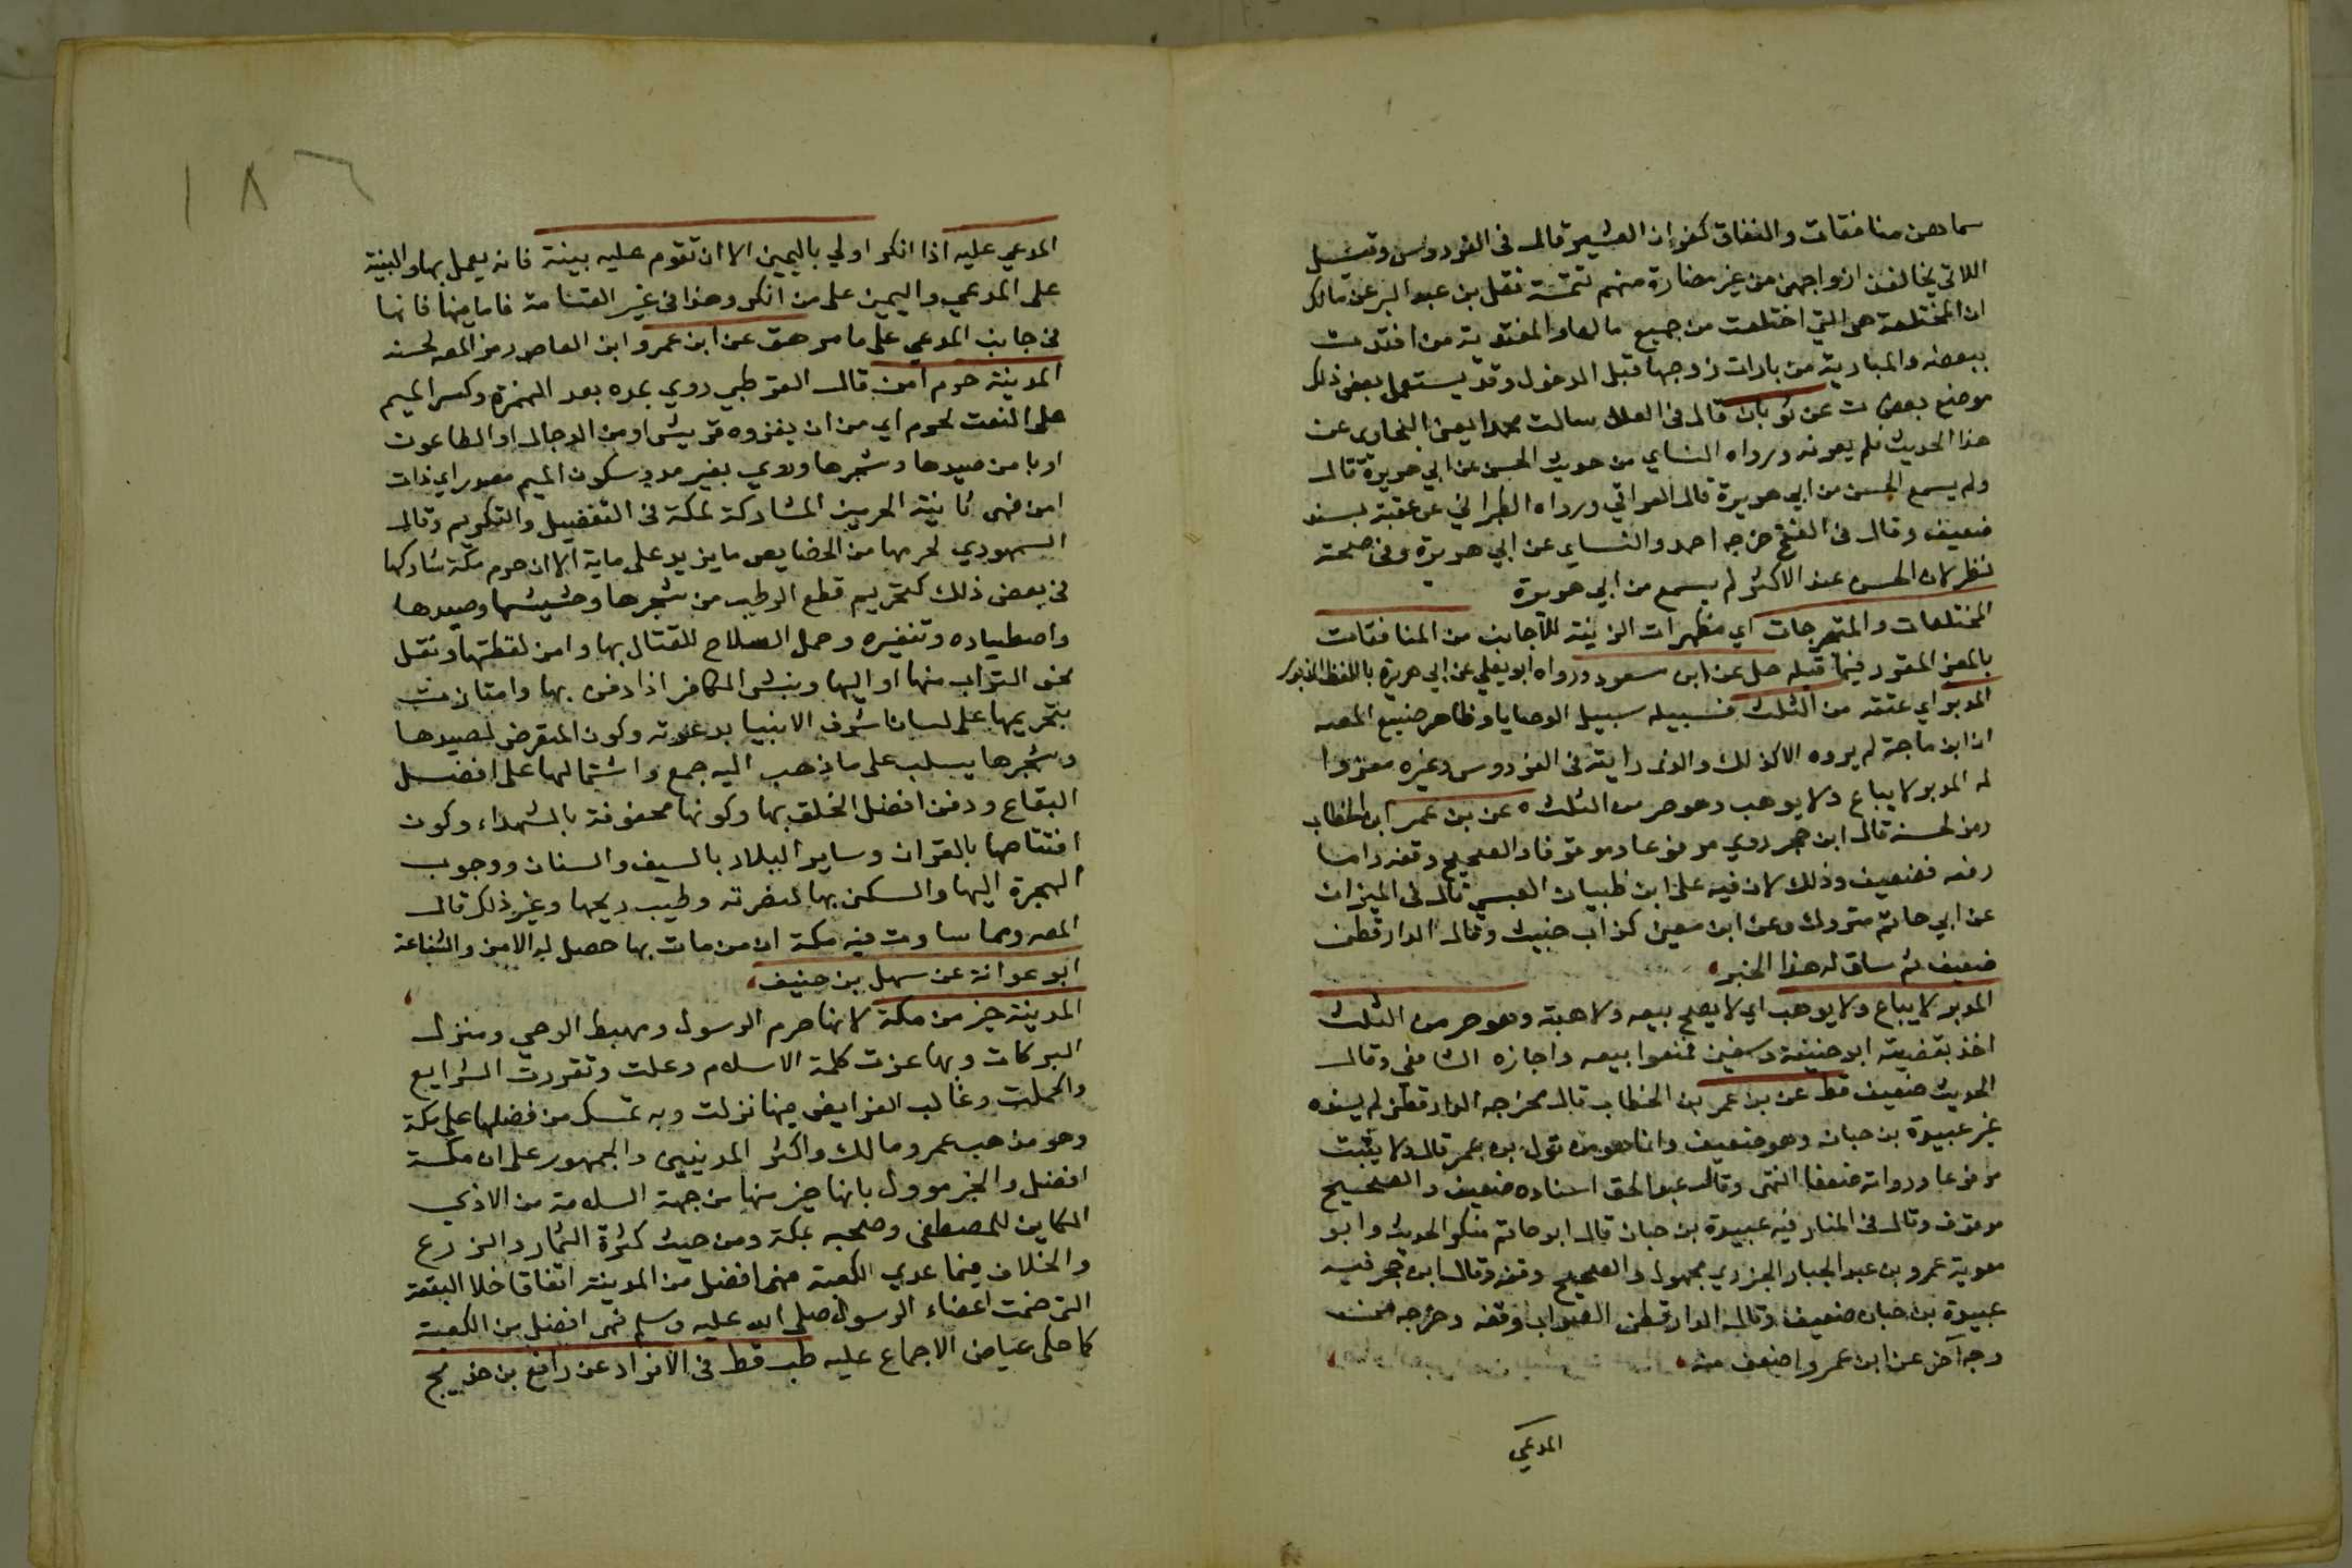 سماهن منافقات والنفاق كفران العشير قال في الفردوس وقيل
اللاتي يخالفن ازواجهن من غير مضارة منهم تتمة نقل بن عبد البر عن مالك
ان المختلعة هي التي اختلعت من جميع مالها والمفتدية من افتدت
ببعضه والمبارية من بارات زوجها قبل الدخول وقد يستعمل بعض ذلك
موضع بعض ت عن ثوبان قال في العلل سالت محمدا يعني البخاري عن
هذا الحديث فلم يعرفه ورواه النساي من حديث الحسن عن ابي هريرة قال
ولم يسمع الحسن من ابي هريرة قال العراقي ورواه الطبراني عن عقبة بسند
ضعيف وقال في الفتح خرجه احمد والنساي عن ابي هريرة وفي صحته
نظر لان الحسن عند الاكثر لم يسمع من ابي هريرة
المختلعات والمتبرجات اي مظهرات الزينة للاجانب من المنافقات
بالمعنى المقرر فيما قبله حل عن ابن مسعود ورواه ابو يعلي عن ابي هريرة باللفظ المذبور
المدبر اي عتقه من الثلث فسبيله سبيل الوصايا وظاهر صنيع المصـ
ان ابن ماجة لم يروه الا كذلك والذي رايته في الفردوس وغيره معزوا
له المدبر لا يباع ولا يوهب وهو حر من الثلث ه عن بن عمر ابن الخطاب
رمز لحسنه قال ابن حجر روي مرفوعا وموقوفا والصحيح وقفه واما
رفعه فضعيف وذلك لان فيه علي ابن ظبيان العبسي قال في الميزان
عن ابي حاتم متروك وعن ابن معين كذاب خبيث وقال الدارقطني
ضعيف ثم ساق له هذا الخبر
المدبر لا يباع ولا يوهب اي لا يصح بيعه ولا هبته وهو حر من الثلث
اخذ بقضيته ابو حنيفة وسفين فمنعوا بيعه واجازه الشافعي وقال
الحديث ضعيف قط عن بن عمر بن الخطاب قال مخرجه الدارقطني لم يسنده
غير عبيدة بن حبان وهو ضعيف وانما هو من قول بن عمر قال ولا يثبت
مرفوعا ورواته ضعفا انتهى وقال عبد الحق اسناده ضعيف والصحيح
موقوف وقال في المنار فيه عبيدة بن حبان قال ابو حاتم منكر الحديث وابو
معوية عمرو بن عبد الجبار الجزري مجهول والصحيح وقفه وقال ابن حجر فيه
عبيدة بن حبان ضعيف وقال الدارقطني الصواب وقفه وخرجه من
وجه آخر عن ابن عمر واضعف منه
المدعي
١٨٦
المدعي عليه اذا انكر اولي باليمين الا ان تقوم عليه بينة فانه يعمل بها والبينة
على المدعي واليمين على من انكر وهذا في غير القسامة فاما فيها فانها
في جانب المدعي على ما مر هق عن ابن عمرو ابن العاص رمز المصـ لحسنه
المدينة حرم آمن قال القرطبي روي بمده بعد الهمزة وكسر الميم
على النعت لحرم اي من ان يغزوه قريش او من الدجال او الطاعون
او يامن صيدها وشجرها وروي بغير مد وسكون الميم مصدر اي ذات
امن فهى ثانية الحرمين المشاركة لمكة في التفضيل والتكريم وقال
السمهودي لحرمها من الخصايص ما يزيد على ماية الا ان حرم مكة شاركها
في بعض ذلك كتحريم قطع الرطب من شجرها وحشيشها وصيدها
واصطياده وتنفيره وحمل السلاح للقتال بها وامن لقطتها ونقل
نحو التراب منها او اليها وينبش الكافر اذا دفن بها وامتازت
بتحريمها على لسان اشرف الانبيا بدعوته وكون المتعرض لصيدها
وشجرها يسلب على ما ذهب اليه جمع واشتمالها على افضل
البقاع ودفن افضل الخلق بها وكونها محفوفة بالشهداء وكون
افتتاحها بالقران وساير البلاد بالسيف والسنان ووجوب
الهجرة اليها والسكن بها لنصرته وطيب ريحها وغير ذلك قال
المصـ ومما ساوت فيه مكة ان من مات بها حصل له الامن والشفاعة
ابو عوانة عن سهل بن حنيف
المدينة خير من مكة لانها حرم الرسول ومهبط الوحي ومنزل
البركات وبها عزت كلمة الاسلام وعلت وتقررت الشرايع
واكملت وغالب الفرايض فيها نزلت وبه تمسك من فضلها على مكة
وهو مذهب عمر ومالك واكثر المدينيين والجمهور على ان مكة
افضل والخبر موول بانها خير منها من جهة السلامة من الاذي
الكاين للمصطفى وصحبه بمكة ومن حيث كثرة الثمار والزرع
والخلاف فيما عدي الكعبة فهى افضل من المدينة اتفاقا خلا البقعة
التي ضمت اعضاء الرسول صلى الله عليه وسلم فهى افضل من الكعبة
كما حكى عياض الاجماع عليه طب قط في الافراد عن رافع بن خديج